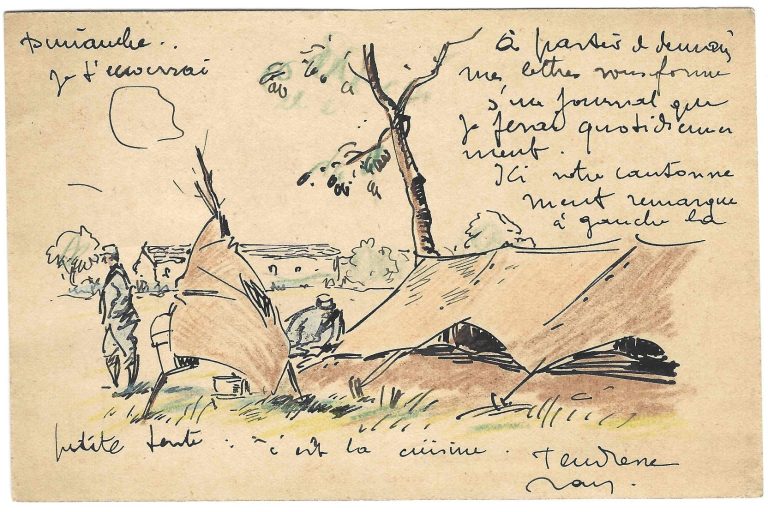 Dimanche..
je t'enverrai
À partir de demain
mes lettres sous forme
d'un journal que
je ferai quotidienne
ment.
Ici notre cantonne
ment remarque
à gauche la
petite tente : c'est la cuisine.
Tendresse